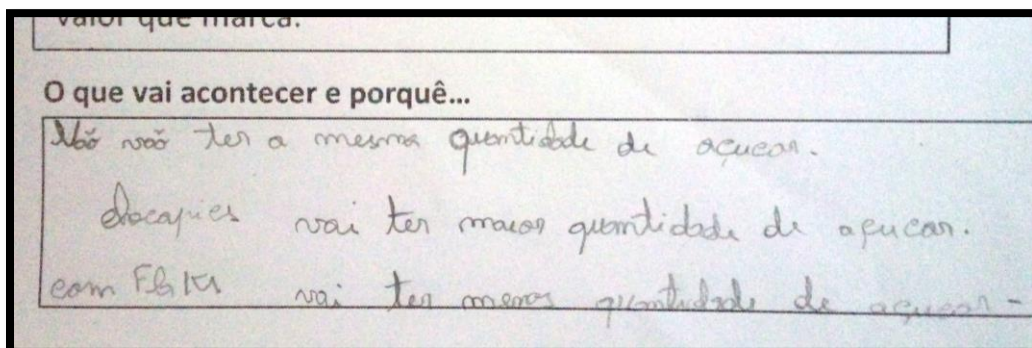 valor que marca.
O que vai acontecer e porquê...
Não vão ter a mesma quantidade de açucar.
vai ter maior quantidade de açucar.
com vai ter menos quantidade de açucar -